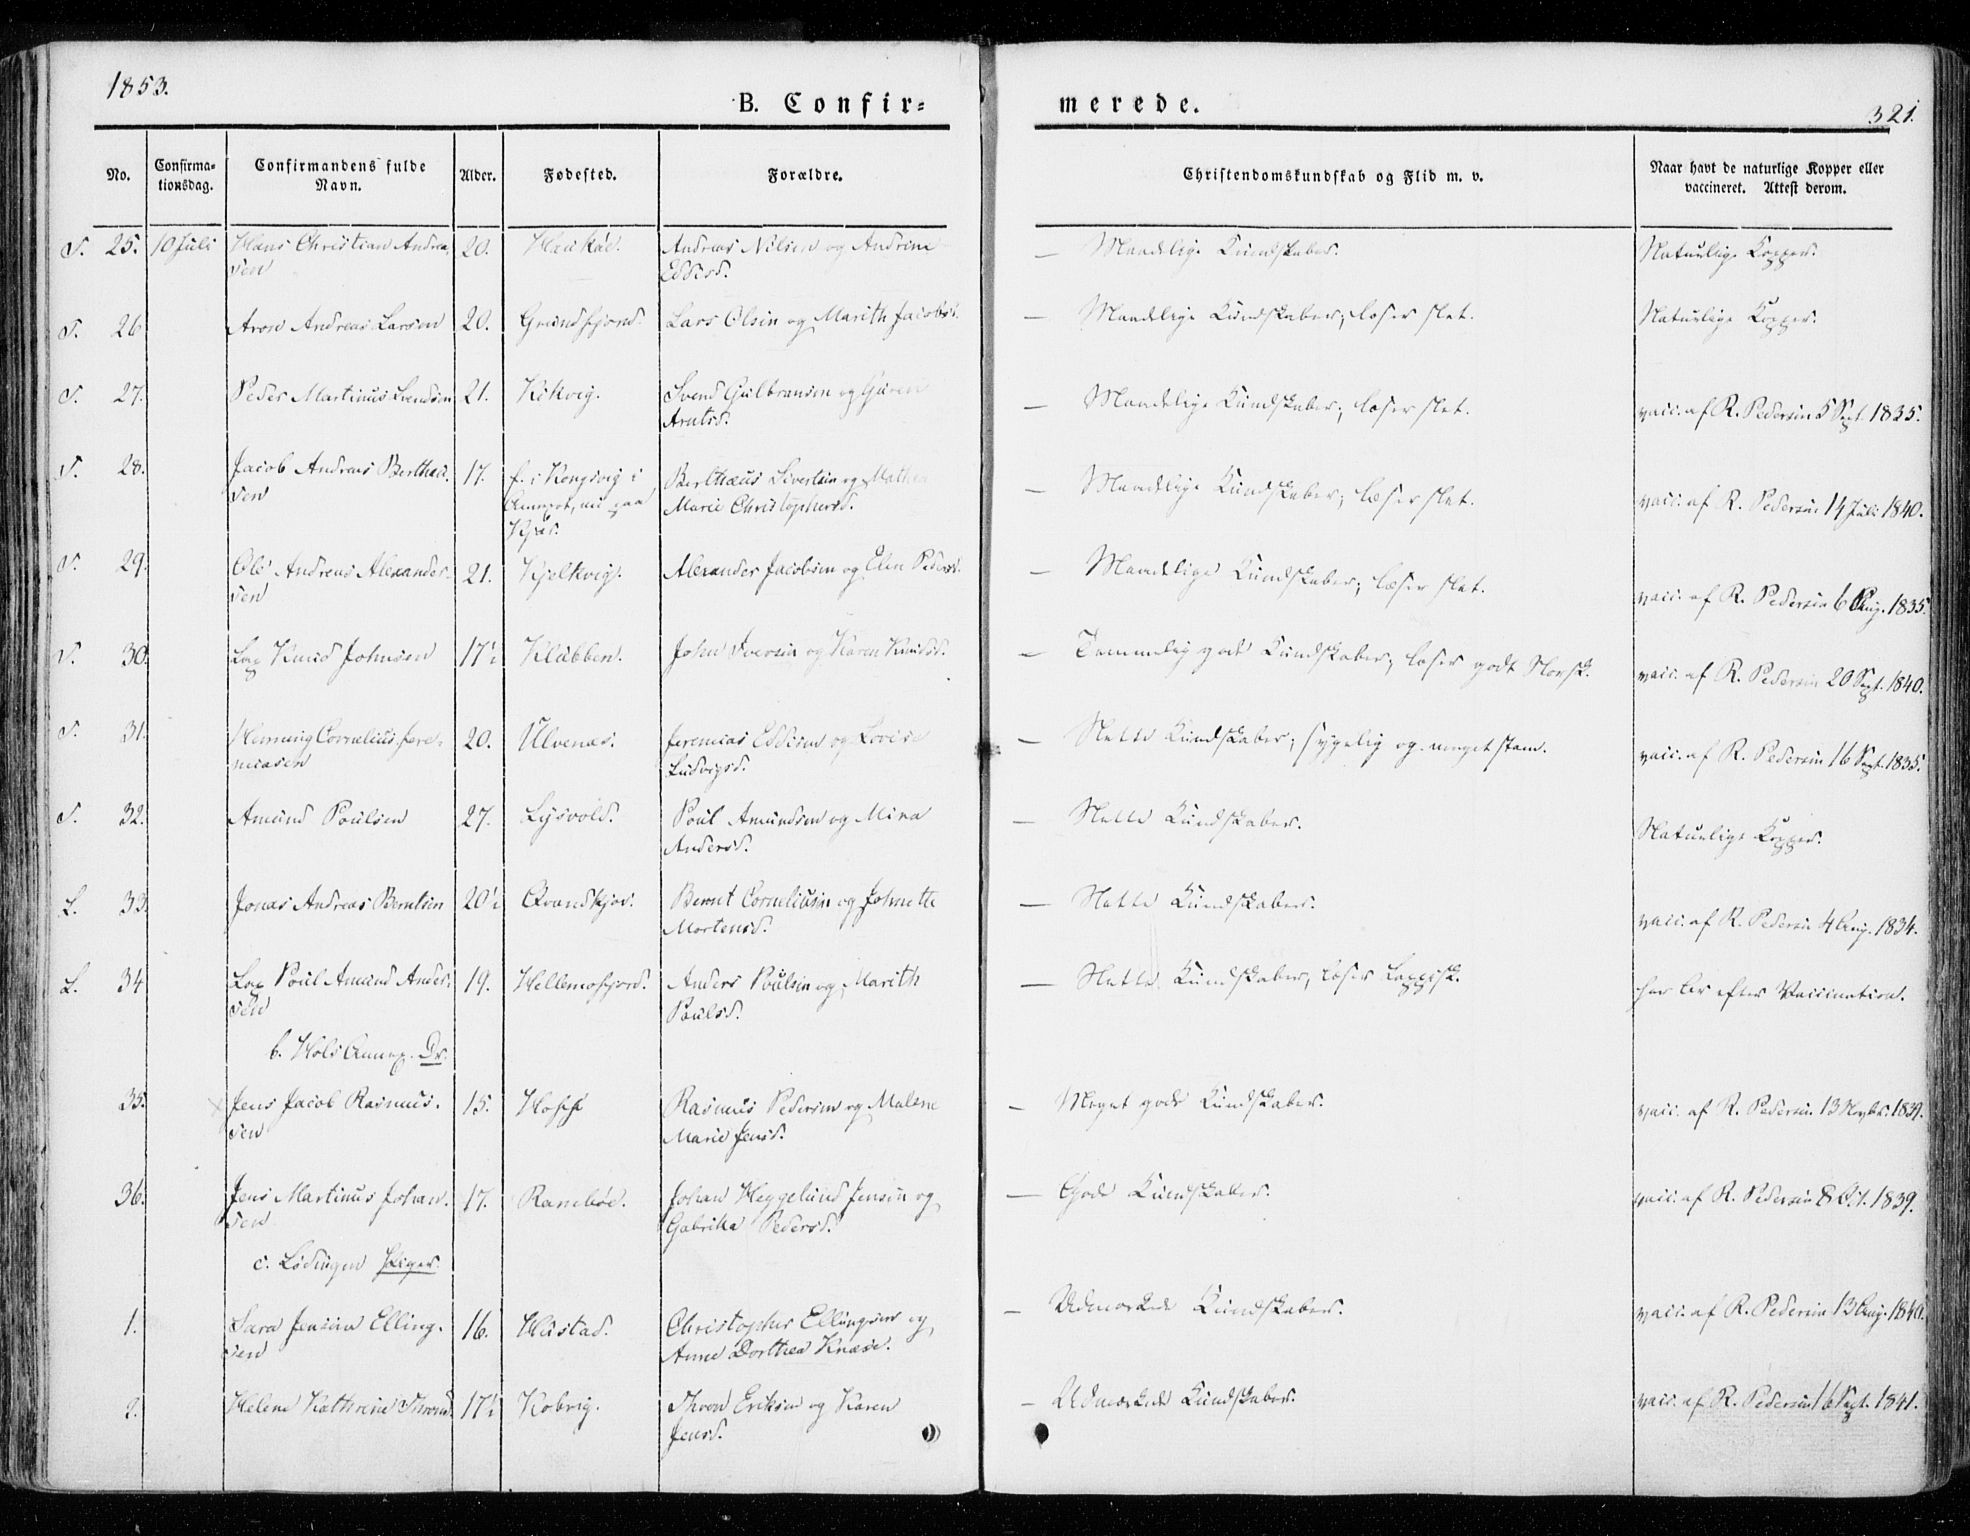 1853.
B. Confir=
merede.
321.
No.
Confirma=
tionsdag.
Confirmandens fulde
Navn.
Alder.
Fødested.
Forældre.
Christendomskundskab og Flid m. v.
Naar havt de naturlige Kopper eller
vaccineret. Attest derom.
25. 10 Juli Hans Christian Andrea-
sen
20.
Andreas Nilsen og Andrine
Eddisd.
— Maadelige Kundskaber.
Naturlige Kopper.
26 Aron Andreas Larsen 20. Grundfjord. Lars Olsen og Marith Jacobsd. — Maadelige Kundskaber; læser slet. Naturlige Kopper.
27. Peder Martinus Svendsen 21. Svend Gulbransen og
Arntsd.
— Maadelige Kundskaber; læser slet.
vacc. af R. Pedersen 5 Sept. 1835.
28. Jacob Andreas Bertheu-
sen
17. f. i Kongsvig i
Annexet, nu paa
Bertheus Sivertsen og Mathea
Marie Christophersd.
— Maadelige Kundskaber; læser slet.
vacc. af R. Pedersen 14 Juli 1840.
29. Ole Andreas Alexander-
sen
21. Kjelkvig. Alexander Jacobsen og Elen Pedersd.
— Maadelige Kundskaber; læser slet.
vacc. af R. Pedersen 6 Aug. 1835.
30. Lap Knud Johnsen 17½ Klubben. John Iversen og Karen Knudsd.
— Temmelig gode Kundskaber; læser godt Norsk.
vacc. af R. Pedersen 20 Sept. 1840.
31. Henning Cornelius Jere-
miasen
20. Ulvenæs. Jeremias Eddisen og Lovise
Ludvigsd.
— Slette Kundskaber; sygelig og meget stam.
vacc. af R. Pedersen 16 Sept. 1835.
32. Amund Poulsen 27. Lysvold. Poul Amundsen og Mina
Andersd.
— Slette Kundskaber.
Naturlige Kopper.
L. 33. Jonas Andreas Berntsen 20½ Qvandkjov. Bernt Corneliusen og Johnette
Mortensd.
— Slette Kundskaber.
vacc. af R. Pedersen 4 Aug. 1834.
L. 34 Lap Poul Amund Ander-
sen
19. Hellemofjord. Anders Poulsen og Marith
Poulsd.
— Slette Kundskaber, læser Lappisk.
har Ar efter Vaccination.
b. Hols Annex. Dr.
35. Jens Jacob Rasmus-
sen
15. Rasmus Pedersen og Malene
Marie Jensd.
— Meget gode Kundskaber.
vacc. af R. Pedersen 13 Novbr. 1839.
36. Jens Martinus Johan-
sen
17. Ramböe. Johan Heggelund Jensen og
Gabrika Pedersd.
— Gode Kundskaber.
vacc. af R. Pedersen 8 Oct. 1839.
c. Lødingen Piger.
1. Sara Jensine Elling-
sen
16. Hustad. Christopher Ellingsen og
Anne Dorthea Knæse.
— Udmærkede Kundskaber.
vacc. af R. Pedersen 13 Aug. 1840.
2. Helene Kathrine Thronds. 17½ Kobvig. Thron Eriksen og Karen
Jensd.
— Udmærkede Kundskaber.
vacc. af R. Pedersen 16 Sept. 1841.